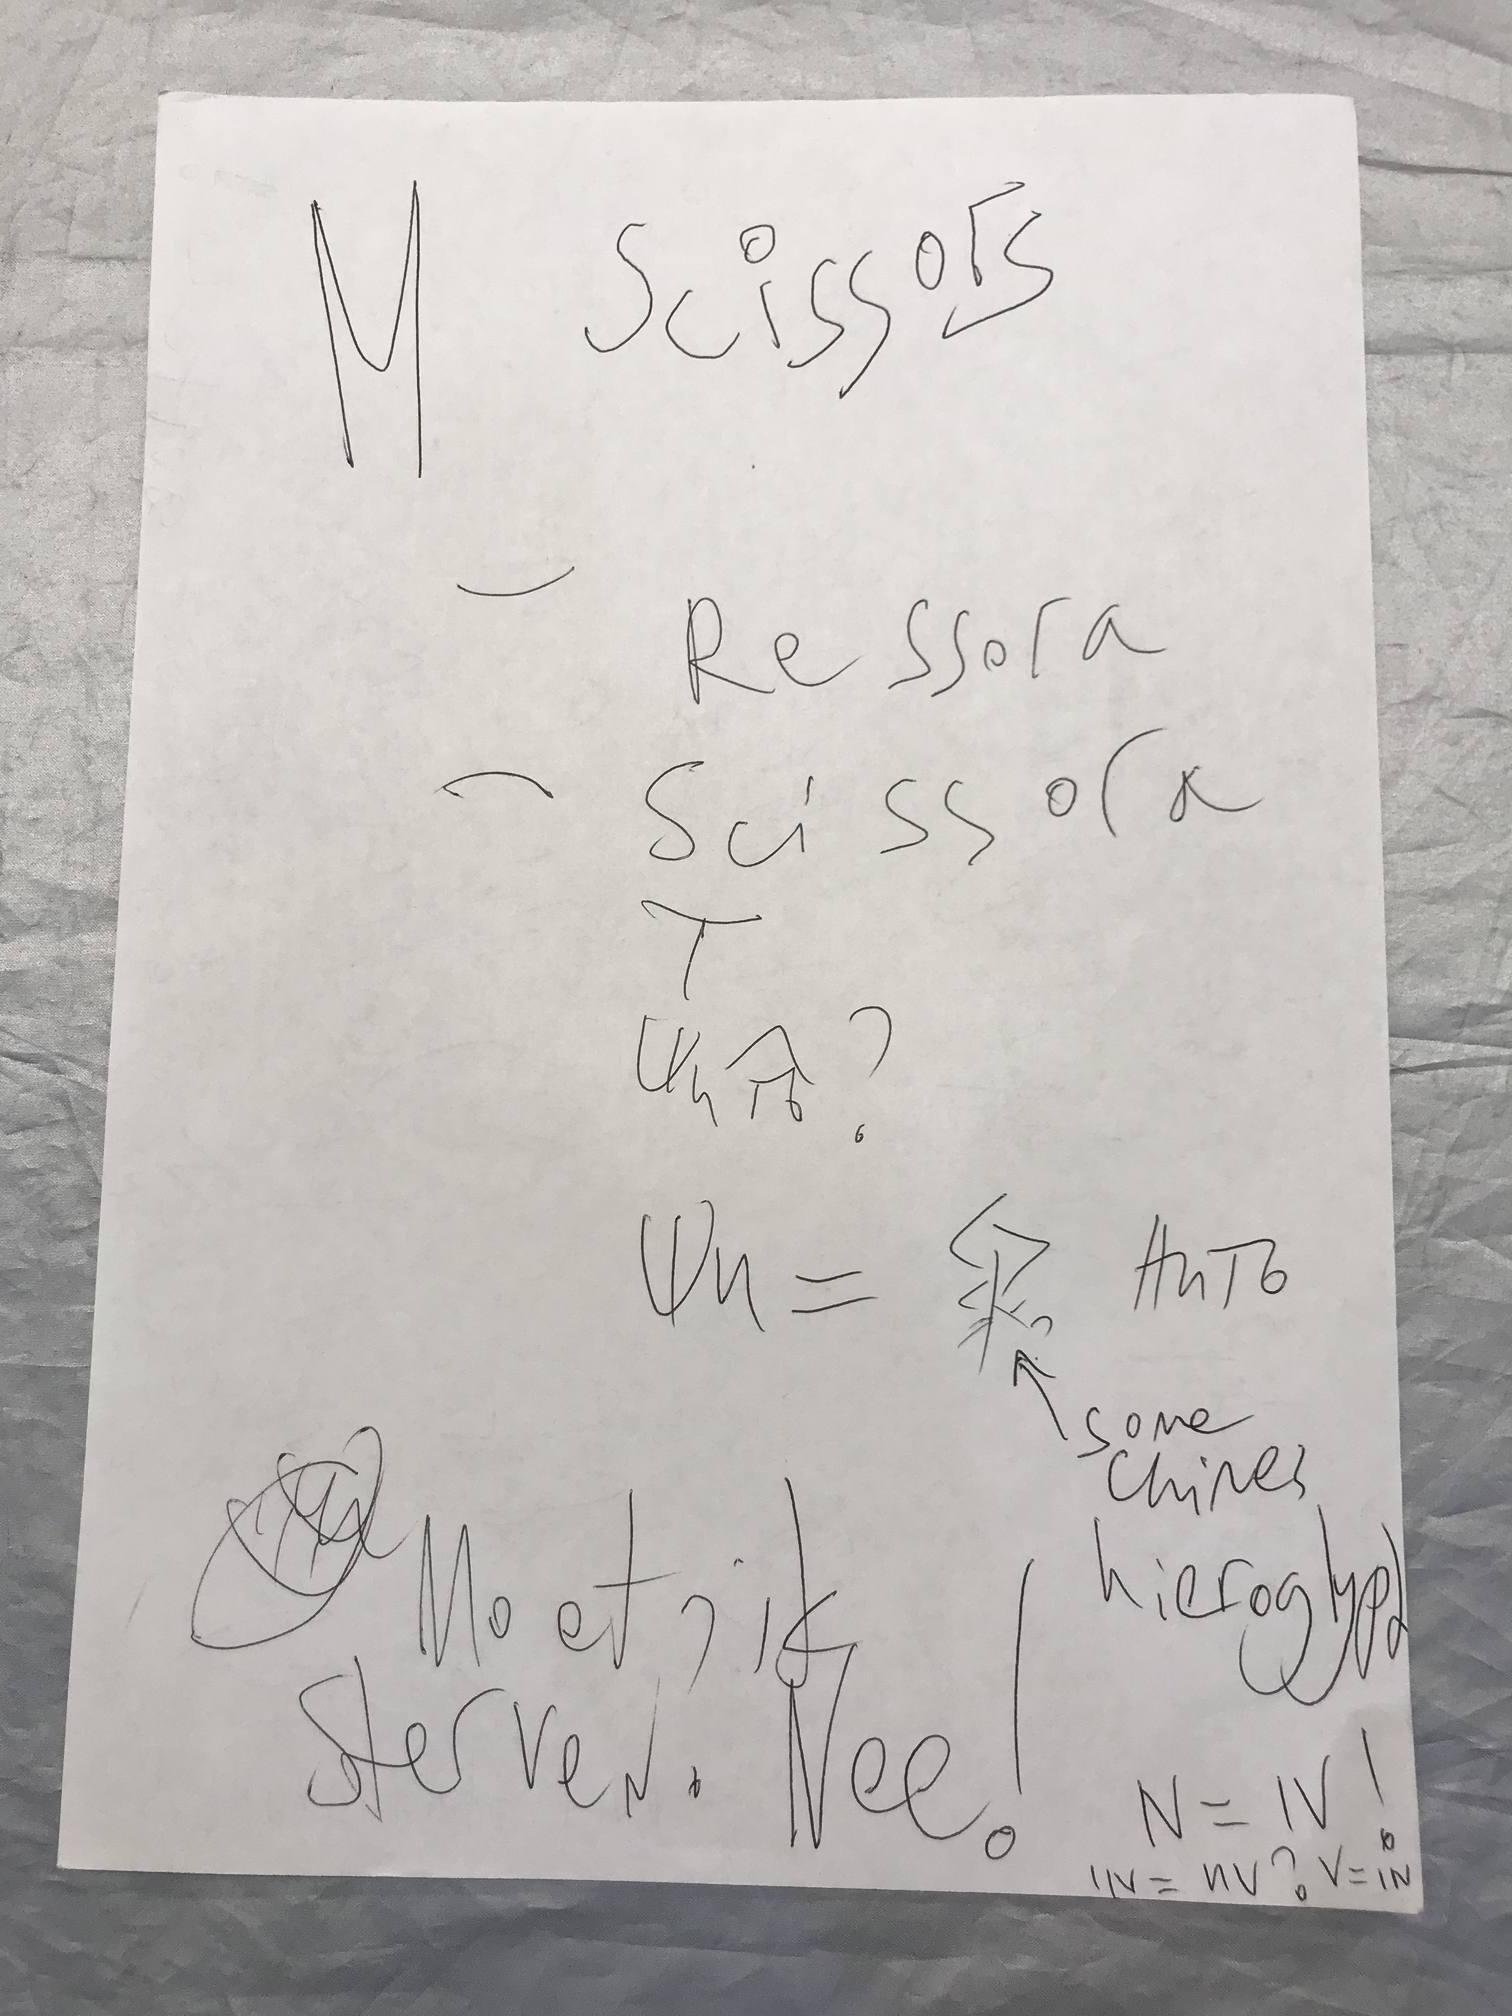 M Scissors
Ressora
Scissora
T
Ψn = Auto
some
Chines
hieroglyph
Moet, ik
sterven. Nee!
N = IV!
IIV = NV? V = IN